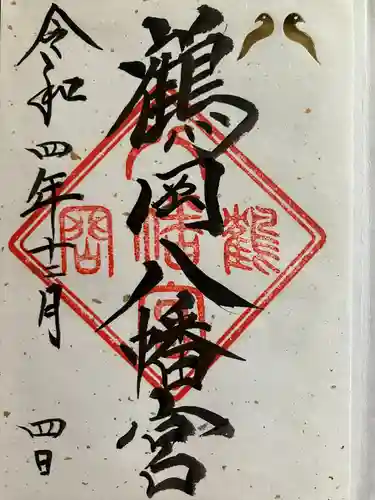 鶴岡八幡宮
令和四年十二月四日
鶴
岡
八幡
宮